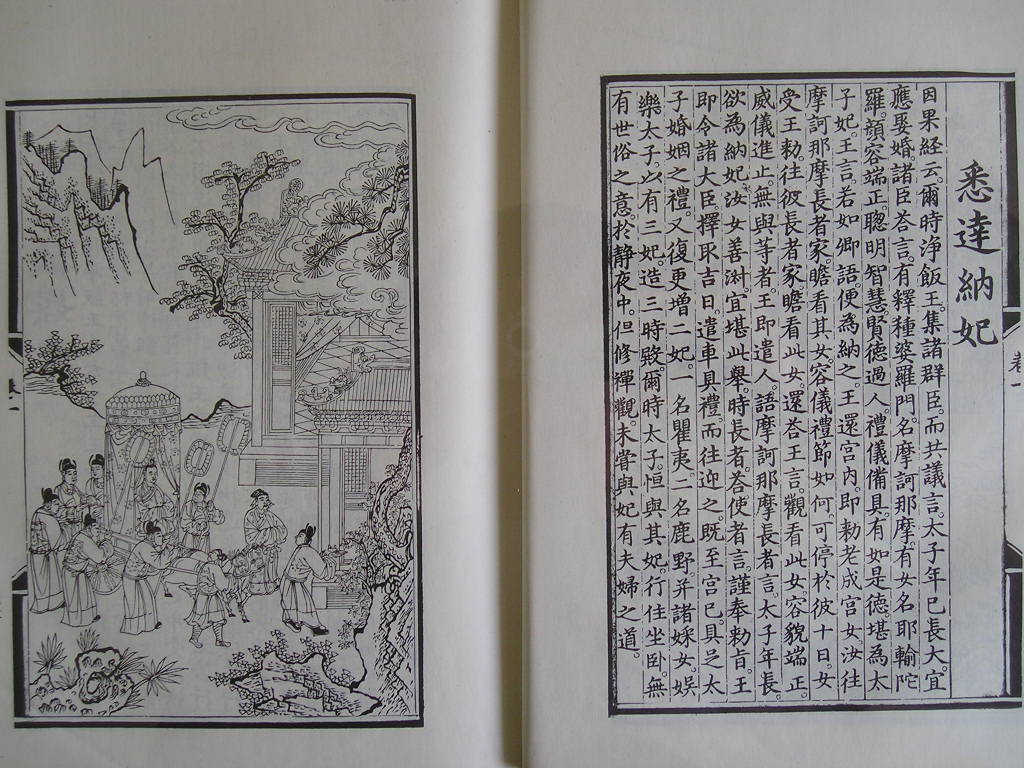 悉達納妃
因果経云。爾時淨飯王。集諸群臣。而共議言。太子年已長大。宜
應娶婚。諸臣荅言。有釋種婆羅門。名摩訶那摩。有女名耶輸陀
羅。顏容端正。聰明智慧。賢德過人。禮儀備具。有如是德。堪為太
子妃。王言。若如卿語。便為納之。王還宮内。即勅老成宮女。汝往
摩訶那摩長者家。瞻看其女。容儀禮節如何。可停於彼十日。女
受王勅。往彼長者家。瞻看此女。還荅王言。觀看此女。容貌端正。
威儀進止。無與等者。王即遣人。語摩訶那摩長者言。太子年長。
欲為納妃。汝女善淑。宜堪此舉。時長者荅使者言。謹奉勅旨。王
即令諸大臣。擇取吉日。遣車具禮。而往迎之。既至宮已。具足太
子婚姻之禮。又復更增二妃。一名瞿夷。二名鹿野。并諸婇女。娯
樂太子。㕥有三妃。造三時殿。爾時太子。恒與其妃。行住坐卧。無
有世俗之意。於靜夜中。但修禪觀。未甞與妃有夫婦之道。
卷一
卷一